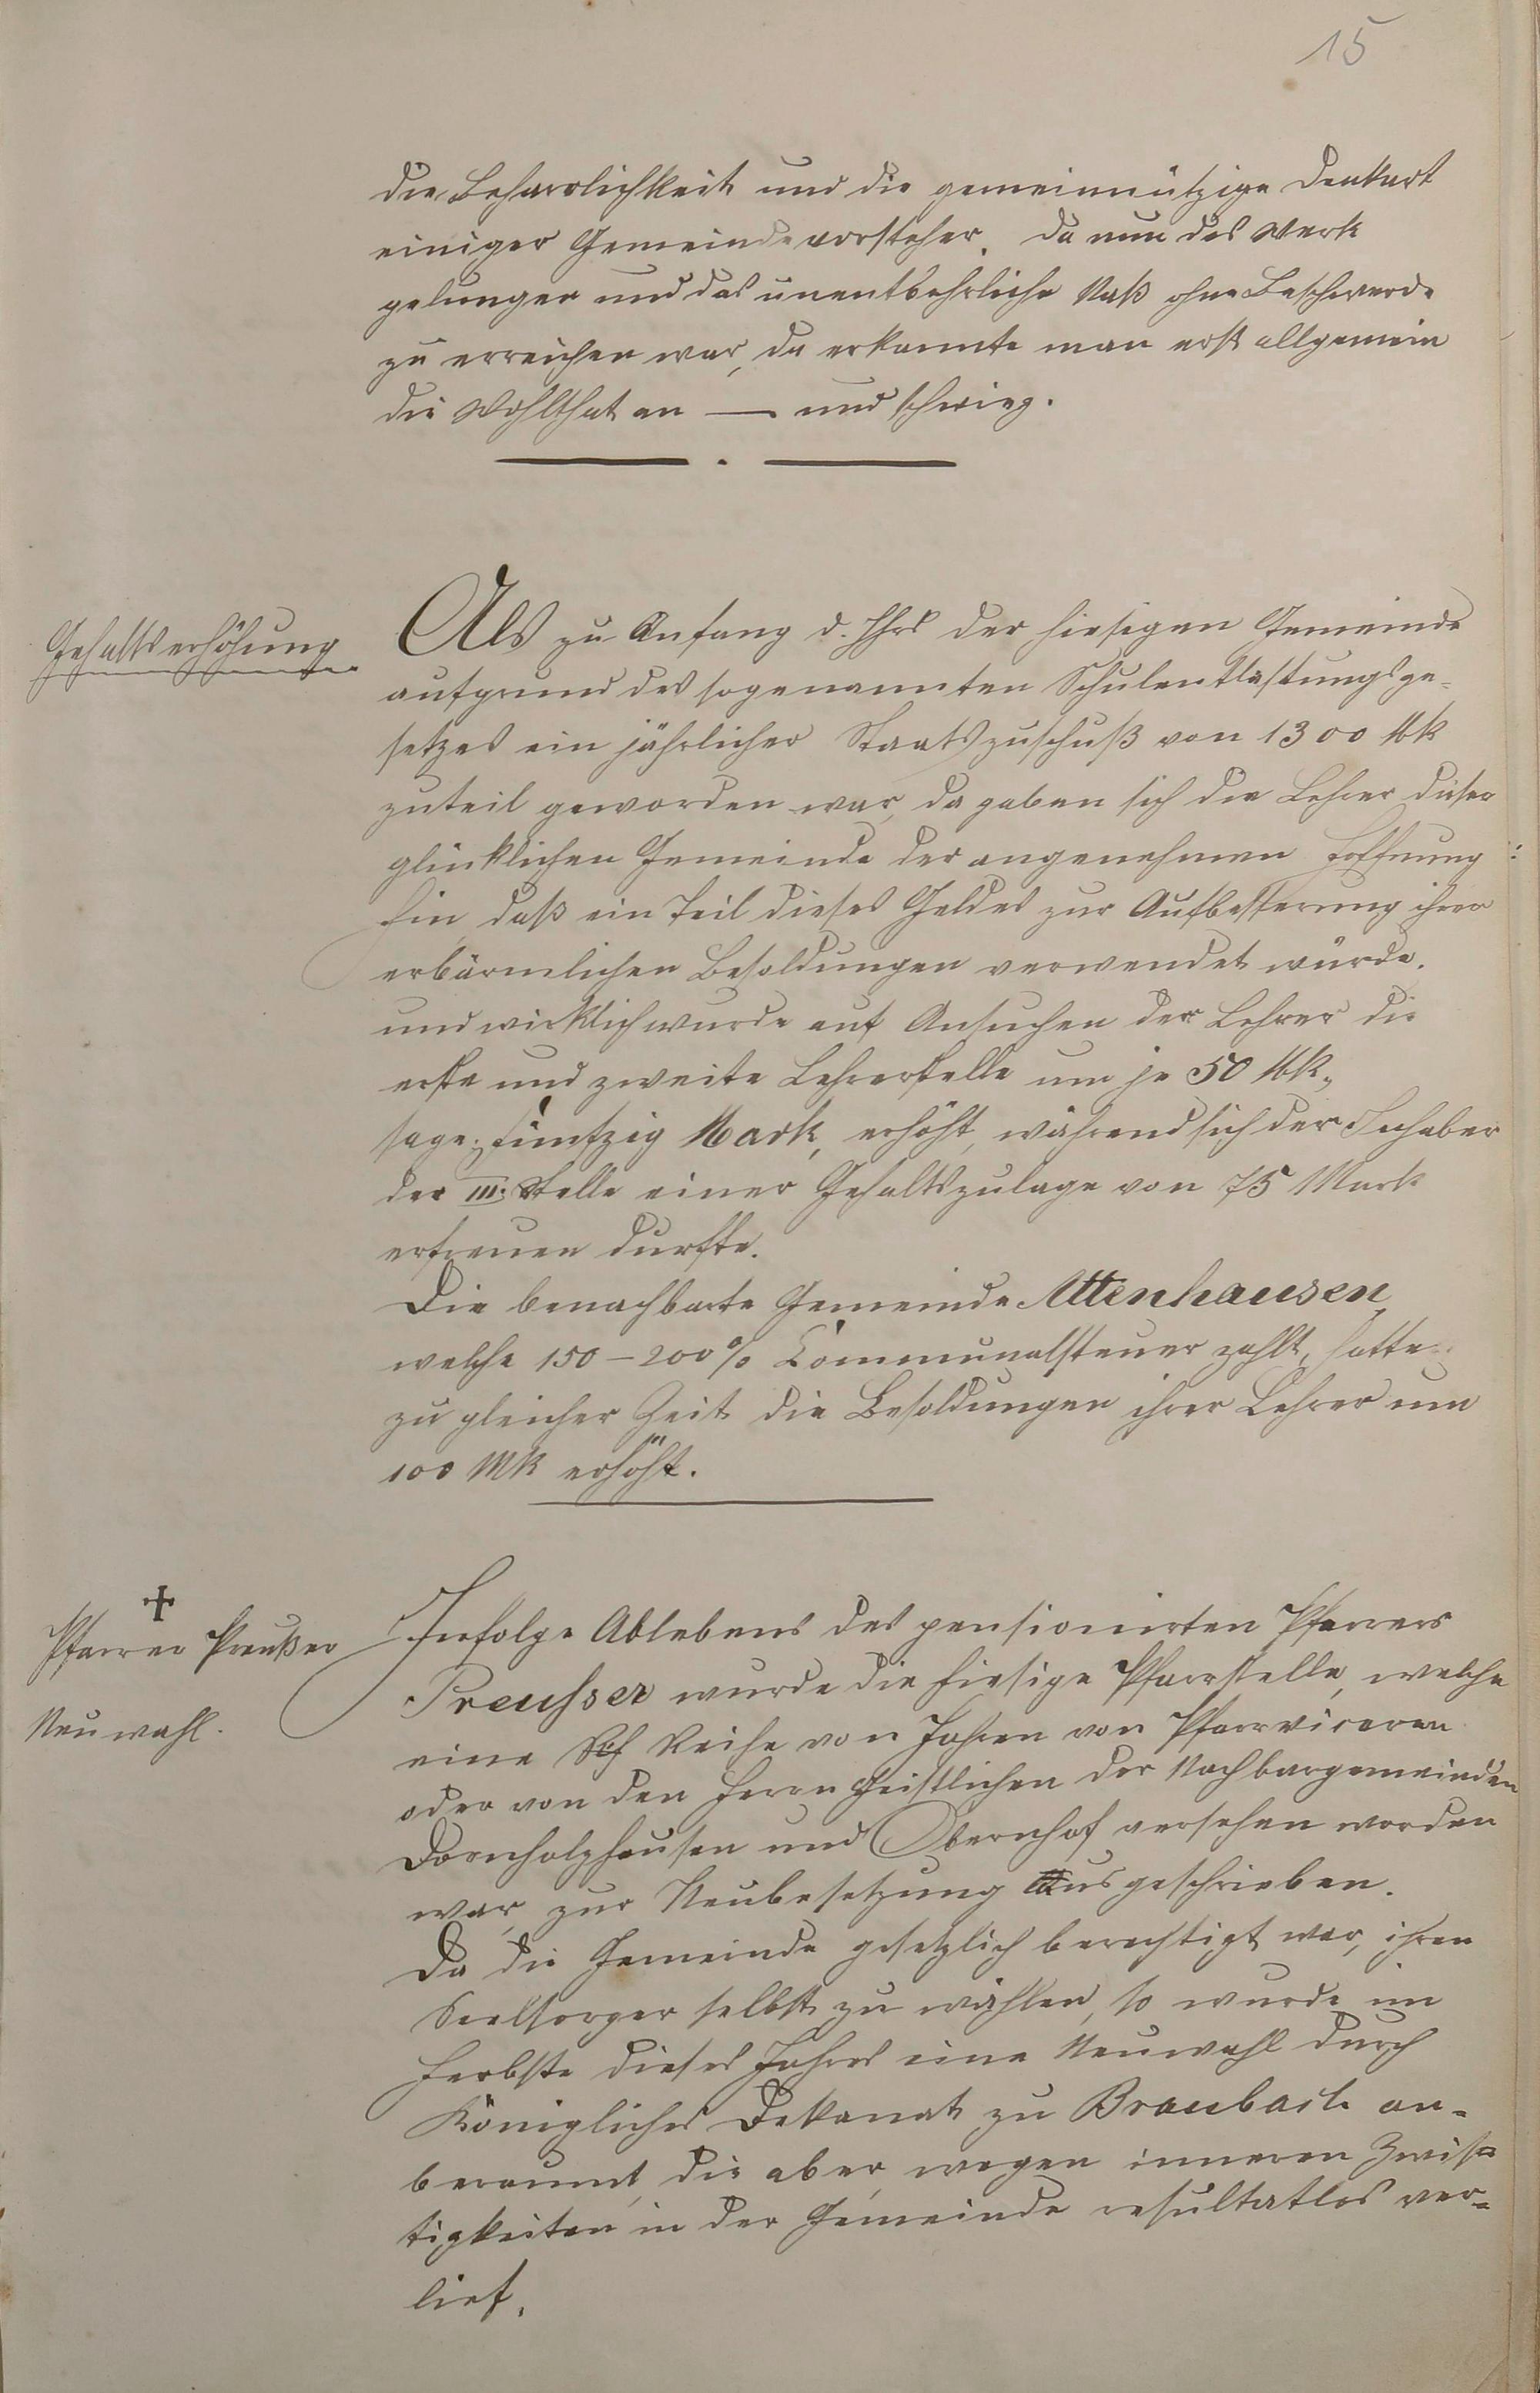 15
die Beharrlichkeit und die gemeinnützige Denkart
einiger Gemeindevorsteher. Da nun das Werk
gelungen und das unentbehrliche Naß ohne Beschwerde
zu erreichen war, da erkannte man erst allgemein
die Wohlthat an — und schwieg.
Gehaltserhöhung
Als zu Anfang d. Jhrs der hiesigen Gemeinde
aufgrund des sogenannten Schulentlastungsge-
setzes ein jährlicher Staatszuschuß von 1300 Mk
zuteil geworden war, da gaben sich die Lehrer dieser
glücklichen Gemeinde der angenehmen Hoffnung
hin, daß ein Teil dieses Geldes zur Aufbesserung ihrer
erbärmlichen Besoldungen verwendet würde.
und wirklich wurde auf Ansuchen der Lehrer die
erste und zweite Lehrerstelle um je 50 Mk,
sage: fünfzig Mark, erhöht, während sich der Inhaber
der III. Stelle einer Gehaltszulage von 75 Mark
erfreuen durfte.
Die benachbarte Gemeinde Attenhausen,
welche 150–200% Communalsteuer zahlt, hatte
zu gleicher Zeit die Besoldungen ihrer Lehrer um
100 Mk erhöht.
†
Pfarrer Preußer
Neuwahl.
Infolge Ablebens des pensionirten Pfarrers
Preusser wurde die hiesige Pfarrstelle, welche
eine Reihe von Jahren von Pfarrvicaren
oder von den Herrn Geistlichen der Nachbargemeinden
Dornholzhausen und Obernhof versehen worden
war, zur Neubesetzung ausgeschrieben.
Da die Gemeinde gesetzlich berechtigt war, ihren
Seelsorger selbst zu wählen, so wurde im
Herbste dieses Jahres eine Neuwahl durch
Königliches Dekanat zu Braubach an-
beraumt, die aber, wegen inneren Zwis-
tigkeiten in der Gemeinde resultatlos ver-
lief.